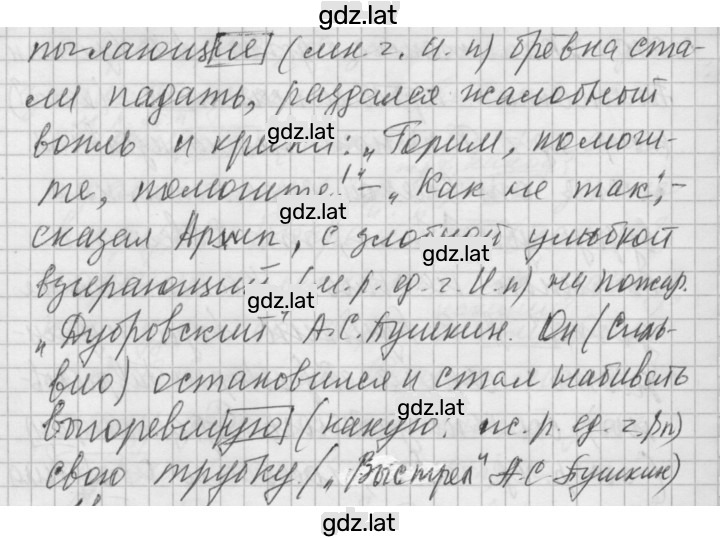 gdz.lat
пылающие (мн. ч. И. п) брёвна ста-
ли падать, раздался жалобный
вопль и крики: „Горим, помоги-
gdz.lat
те, помогите!" – „Как не так", –
gdz.lat
сказал Архип, с злобной улыбкой
gdz.lat
взирающий (м. р. ед. ч. И. п) на пожар.
gdz.lat
„Дубровский" А.С. Пушкин. Он (Силь-
вио) остановился и стал набивать
gdz.lat
выгоревшую (какую: ж. р. ед. ч. В. п)
свою трубку. („Выстрел" А.С. Пушкин)
gdz.lat
gdz.lat